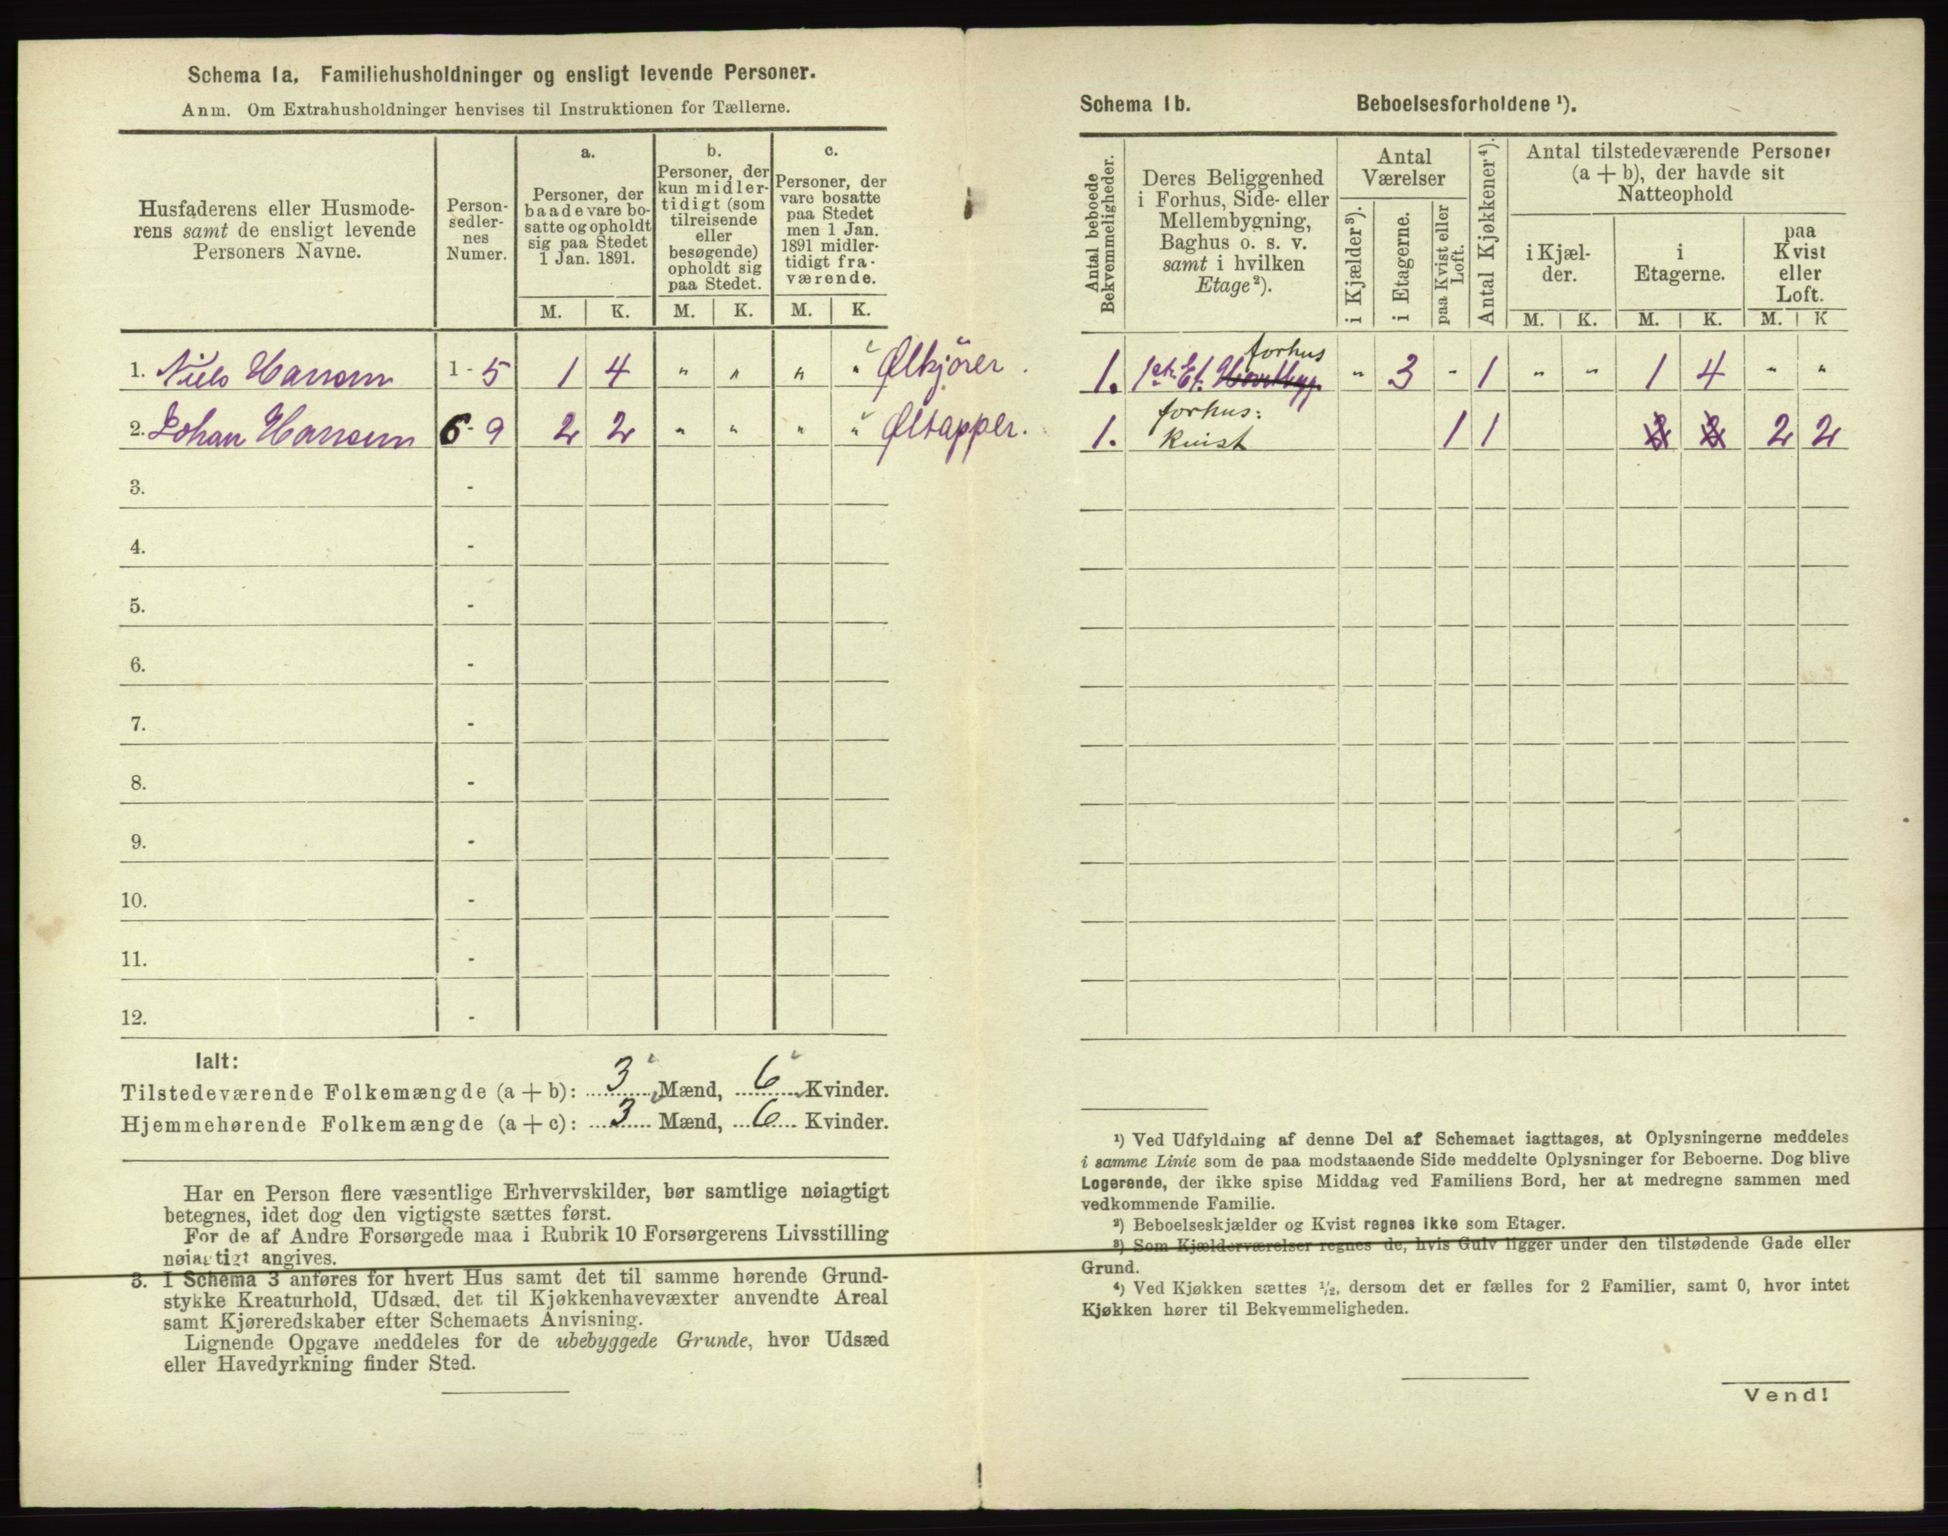 Schema 1a, Familiehusholdninger og ensligt levende Personer.
Anm. Om Extrahusholdninger henvises til Instruktionen for Tællerne.
Husfaderens eller Husmode-
rens samt de ensligt levende
Personers Navne.
Person-
sedler-
nes
Numer.
a.
Personer, der
baade vare bo-
satte og opholdt
sig paa Stedet
1 Jan. 1891.
b.
Personer, der
kun midler-
tidigt (som
tilreisende
eller
besøgende)
opholdt sig
paa Stedet.
c.
Personer, der
vare bosatte
paa Stedet
men 1 Jan.
1891 midler-
tidigt fra-
værende.
M. K. M. K. M. K.
1. Niels Hansen 1-5 1 4 " " " " Ølkjører.
2. Johan Hansen 6-9 2 2 " " " " Øltapper.
3. -
4. -
5. -
6. -
7. -
8. -
9. -
10. -
11. -
12. -
Ialt:
Tilstedeværende Folkemængde (a + b): 3 Mænd, 6 Kvinder.
Hjemmehørende Folkemængde (a + c): 3 Mænd, 6 Kvinder.
Har en Person flere væsentlige Erhvervskilder, bør samtlige nøiagtigt
betegnes, idet dog den vigtigste sættes først.
For de af Andre Forsørgede maa i Rubrik 10 Forsørgerens Livsstilling
nøiagtigt angives.
3. I Schema 3 anføres for hvert Hus samt det til samme hørende Grund-
stykke Kreaturhold, Udsæd, det til Kjøkkenhavevæxter anvendte Areal
samt Kjøreredskaber efter Schemaets Anvisning.
Lignende Opgave meddeles for de ubebyggede Grunde, hvor Udsæd
eller Havedyrkning finder Sted.
Schema 1b. Beboelsesforholdene ¹).
Antal beboede
Bekvemmeligheder.
Deres Beliggenhed
i Forhus, Side- eller
Mellembygning,
Baghus o. s. v.
samt i hvilken
Etage²).
Antal
Værelser
i Kjælder³).
i Etagerne.
paa Kvist eller
Loft.
Antal Kjøkkener⁴).
Antal tilstedeværende Personer
(a + b), der havde sit
Natteophold
i Kjæl-
der.
i
Etagerne.
paa
Kvist
eller
Loft.
M. K. M. K. M. K
forhus
1. 1ste Et. Hovedbyg. " 3 " 1 " " 1 4 " "
forhus:
1. Kvist 1 1 2 2 2 2
¹) Ved Udfyldning af denne Del af Schemaet iagttages, at Oplysningerne meddeles
i samme Linie som de paa modstaaende Side meddelte Oplysninger for Beboerne. Dog blive
Logerende, der ikke spise Middag ved Familiens Bord, her at medregne sammen med
vedkommende Familie.
²) Beboelseskjælder og Kvist regnes ikke som Etager.
³) Som Kjælderværelser regnes de, hvis Gulv ligger under den tilstødende Gade eller
Grund.
⁴) Ved Kjøkken sættes ½, dersom det er fælles for 2 Familier, samt 0, hvor intet
Kjøkken hører til Bekvemmeligheden.
Vend!